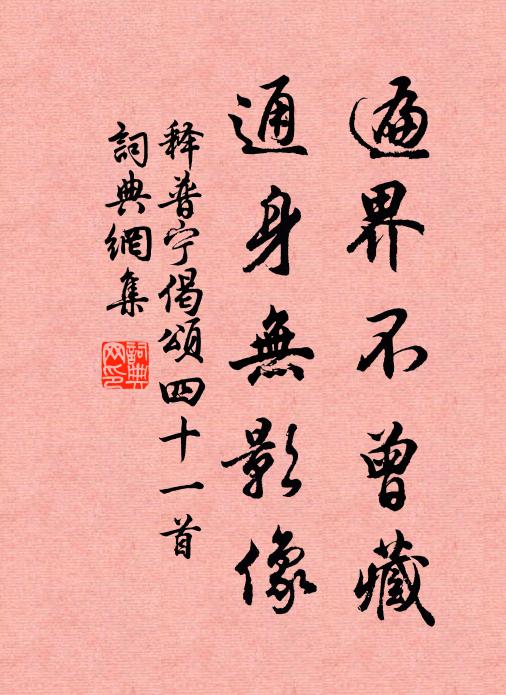 遍界不曾藏
通身無影像
释普宁偈頌四十一首
詞典網集
詞典
网印